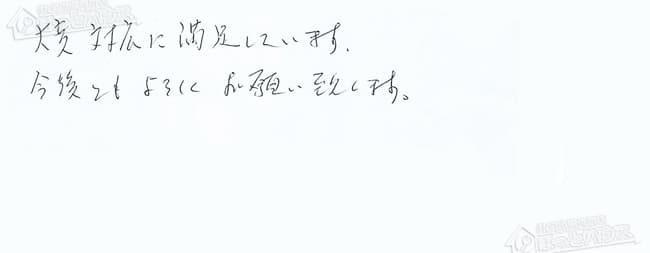 大変対応に満足しています.
今後ともよろしくお願い致します。